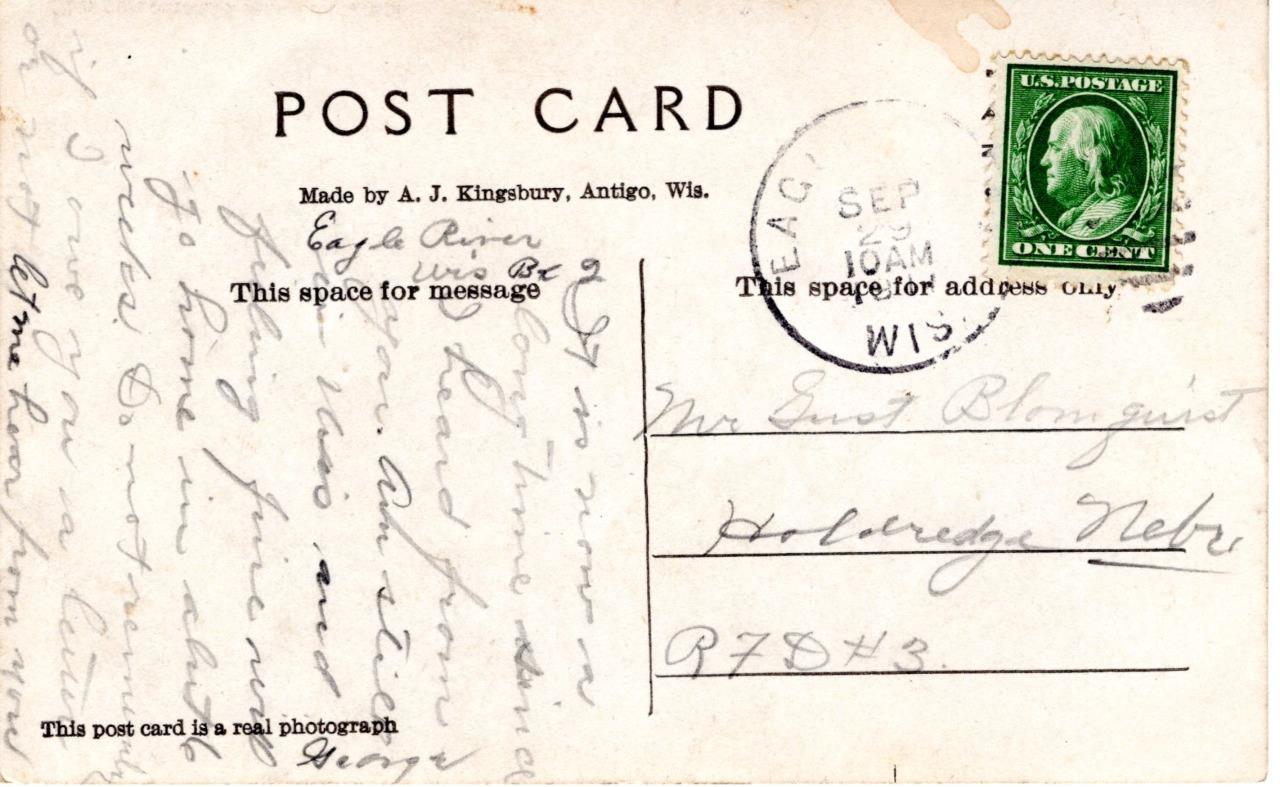 POST CARD
Made by A. J. Kingsbury, Antigo, Wis.
Eagle River
Wis Bx 2
This space for message
It is now a
long time sinc
I heard from
you. Am still
in Wis and
feeling fine will
go home in abut 6
weeks. Do not remember
if I owe you a letter
or not let me hear from you
George
This post card is a real photograph
U.S. POSTAGE
ONE CENT
EAG
SEP
29
10AM
WIS.
This space for address only
Mr Gust Blomquist
Holdredge Nebr.
R F D # 3.